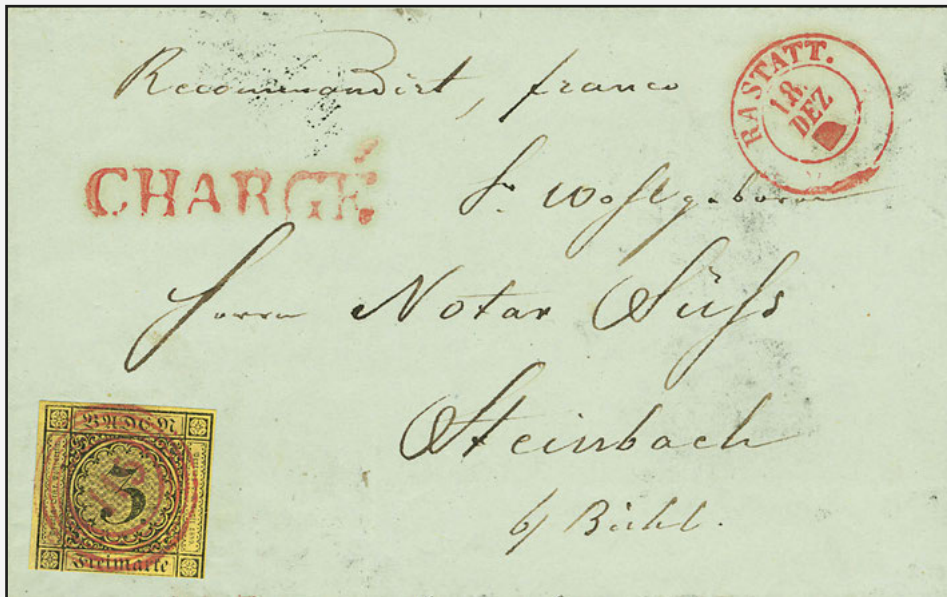 Recommandirt, franco
RASTATT.
18.
DEZ
CHARGÉ.
Sr. Wohlgeboren
Herrn Notar Süss
Steinbach
b/ Bühl.
BADEN
3
Freimarke